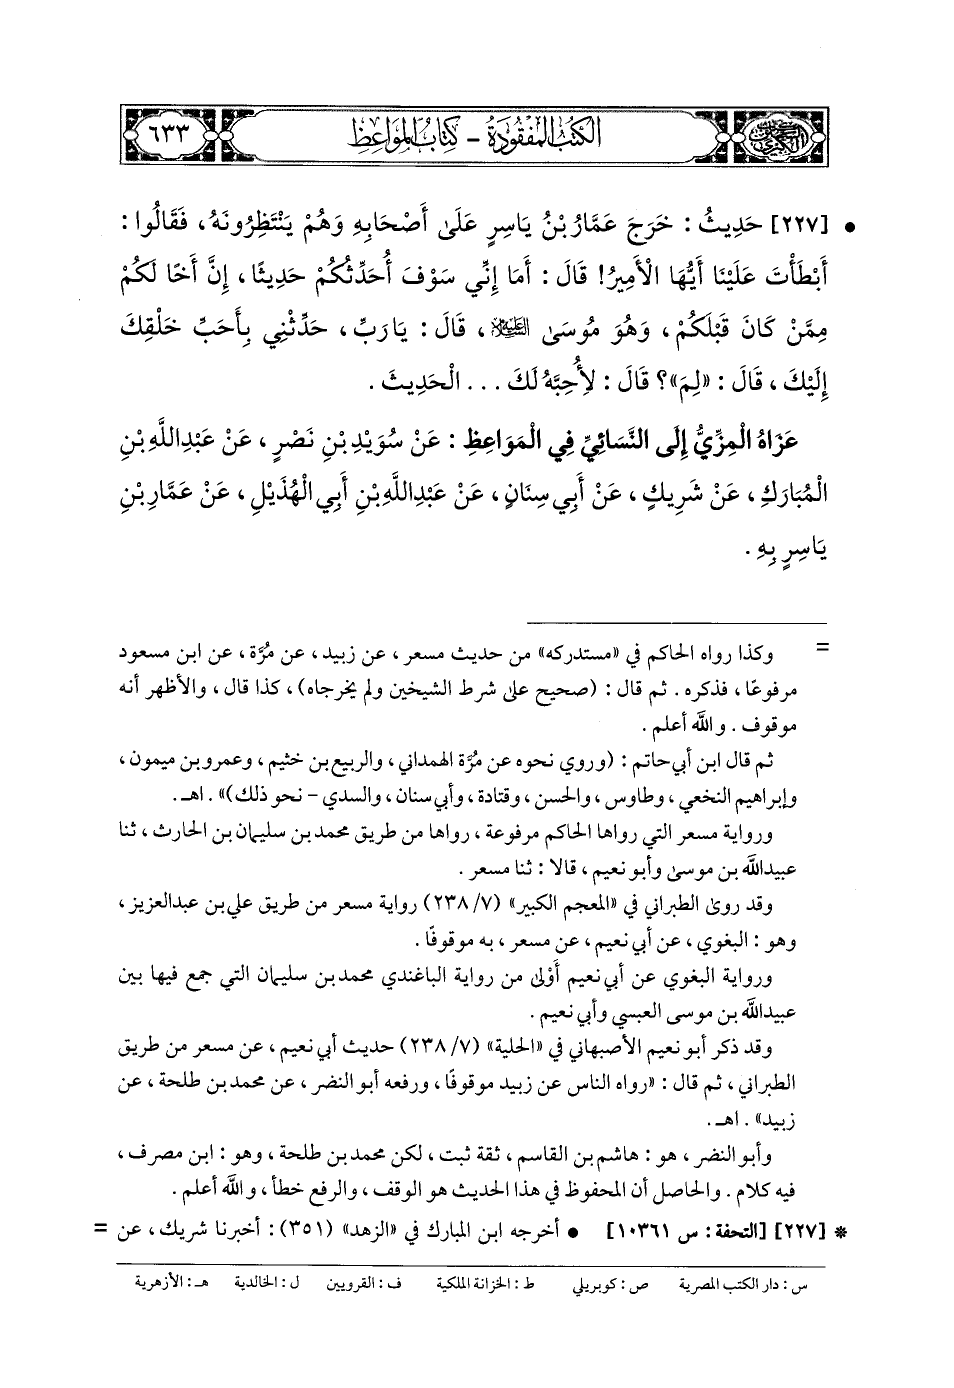 الكتب المفقودة - كتاب المواعظ
٦٣٣
• [٢٢٧] حَدِيثُ : خَرَجَ عَمَّارُ بْنُ يَاسِرٍ عَلَىٰ أَصْحَابِهِ وَهُمْ يَنْتَظِرُونَهُ ، فَقَالُوا :
أَبْطَأْتَ عَلَيْنَا أَيُّهَا الْأَمِيرُ! قَالَ : أَمَا إِنِّي سَوْفَ أُحَدِّثُكُمْ حَدِيثًا ، إِنَّ أَخًا لَكُمْ
مِمَّنْ كَانَ قَبْلَكُمْ ، وَهُوَ مُوسَىٰ عليه السلام ، قَالَ : يَا رَبِّ ، حَدِّثْنِي بِأَحَبِّ خَلْقِكَ
إِلَيْكَ ، قَالَ : «لِمَ»؟ قَالَ : لِأُحِبَّهُ لَكَ . . . الْحَدِيثَ .
عَزَاهُ الْمِزِّيُّ إِلَى النَّسَائِيِّ فِي الْمَوَاعِظِ : عَنْ سُوَيْدِ بْنِ نَصْرٍ ، عَنْ عَبْدِاللَّهِ بْنِ
الْمُبَارَكِ ، عَنْ شَرِيكٍ ، عَنْ أَبِي سِنَانٍ ، عَنْ عَبْدِاللَّهِ بْنِ أَبِي الْهُذَيْلِ ، عَنْ عَمَّارِ بْنِ
يَاسِرٍ بِهِ .
= وكذا رواه الحاكم في «مستدركه» من حديث مسعر ، عن زبيد ، عن مُرَّة ، عن ابن مسعود
مرفوعًا ، فذكره . ثم قال : (صحيح على شرط الشيخين ولم يخرجاه) ، كذا قال ، والأظهر أنه
موقوف . واللَّه أعلم .
ثم قال ابن أبي حاتم : (وروي نحوه عن مُرَّة الهمداني ، والربيع بن خثيم ، وعمرو بن ميمون ،
وإبراهيم النخعي ، وطاوس ، والحسن ، وقتادة ، وأبي سنان ، والسدي – نحو ذلك)» . اهـ.
ورواية مسعر التي رواها الحاكم مرفوعة ، رواها من طريق محمد بن سليمان بن الحارث ، ثنا
عبيداللَّه بن موسىٰ وأبو نعيم ، قالا : ثنا مسعر .
وقد روىٰ الطبراني في «المعجم الكبير» (٧/ ٢٣٨) رواية مسعر من طريق علي بن عبدالعزيز ،
وهو : البغوي ، عن أبي نعيم ، عن مسعر ، به موقوفًا .
ورواية البغوي عن أبي نعيم أَوْلىٰ من رواية الباغندي محمد بن سليمان التي جمع فيها بين
عبيداللَّه بن موسى العبسي وأبي نعيم .
وقد ذكر أبو نعيم الأصبهاني في «الحلية» (٧/ ٢٣٨) حديث أبي نعيم ، عن مسعر من طريق
الطبراني ، ثم قال : «رواه الناس عن زبيد موقوفًا ، ورفعه أبو النضر ، عن محمد بن طلحة ، عن
زبيد» . اهـ.
وأبو النضر ، هو : هاشم بن القاسم ، ثقة ثبت ، لكن محمد بن طلحة ، وهو : ابن مصرف ،
فيه كلام . والحاصل أن المحفوظ في هذا الحديث هو الوقف ، والرفع خطأ ، واللَّه أعلم .
* [٢٢٧] [التحفة : س ١٠٣٦١] • أخرجه ابن المبارك في «الزهد» (٣٥١) : أخبرنا شريك ، عن =
س : دار الكتب المصرية ص : كوبريلي ط : الخزانة الملكية ف : القرويين ل : الخالدية هـ : الأزهرية